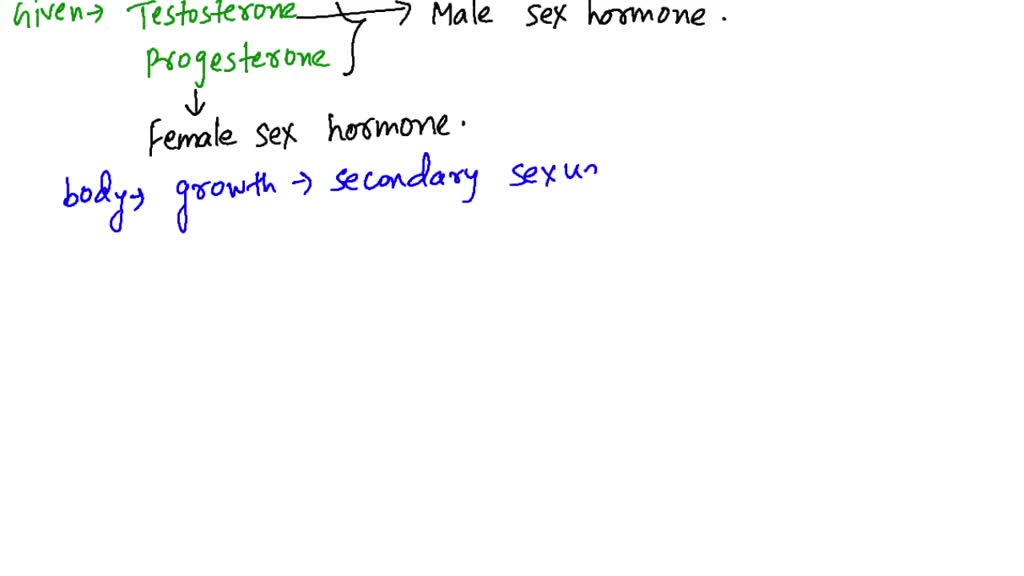 Given → Testosterone → Male sex hormone.
Progesterone
↓
Female sex hormone.
body → growth → secondary sexu